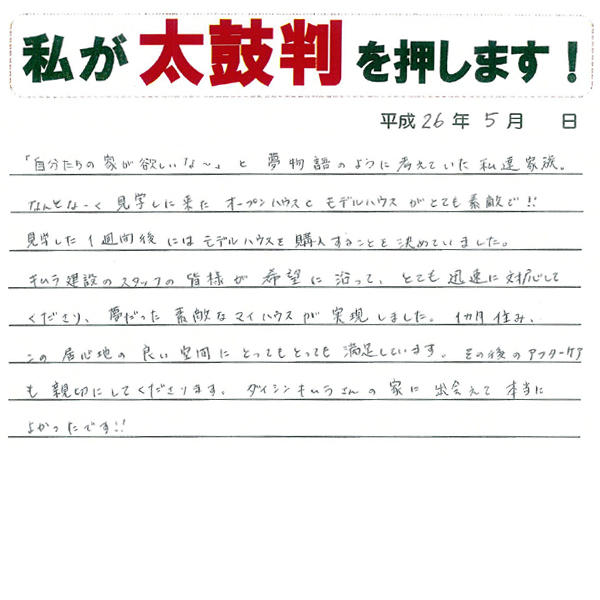 私が太鼓判を押します！
平成 26 年 5 月　　日
「自分たちの家が欲しいな〜」と 夢物語のように考えていた私達家族。
なんとな〜く見学しに来た オープンハウスとモデルハウスがとても素敵で!!
見学した1週間後にはモデルハウスを購入することを決めていました。
キムラ建設のスタッフの皆様が希望に沿って、とても迅速に対応して
くださり、夢だった素敵なマイハウスが実現しました。1カ月住み、
この居心地の良い空間にとってもとっても満足しています。その後のアフターケア
も親切にしてくださります。ダイシンキムラさんの家に出会えて本当に
よかったです!!